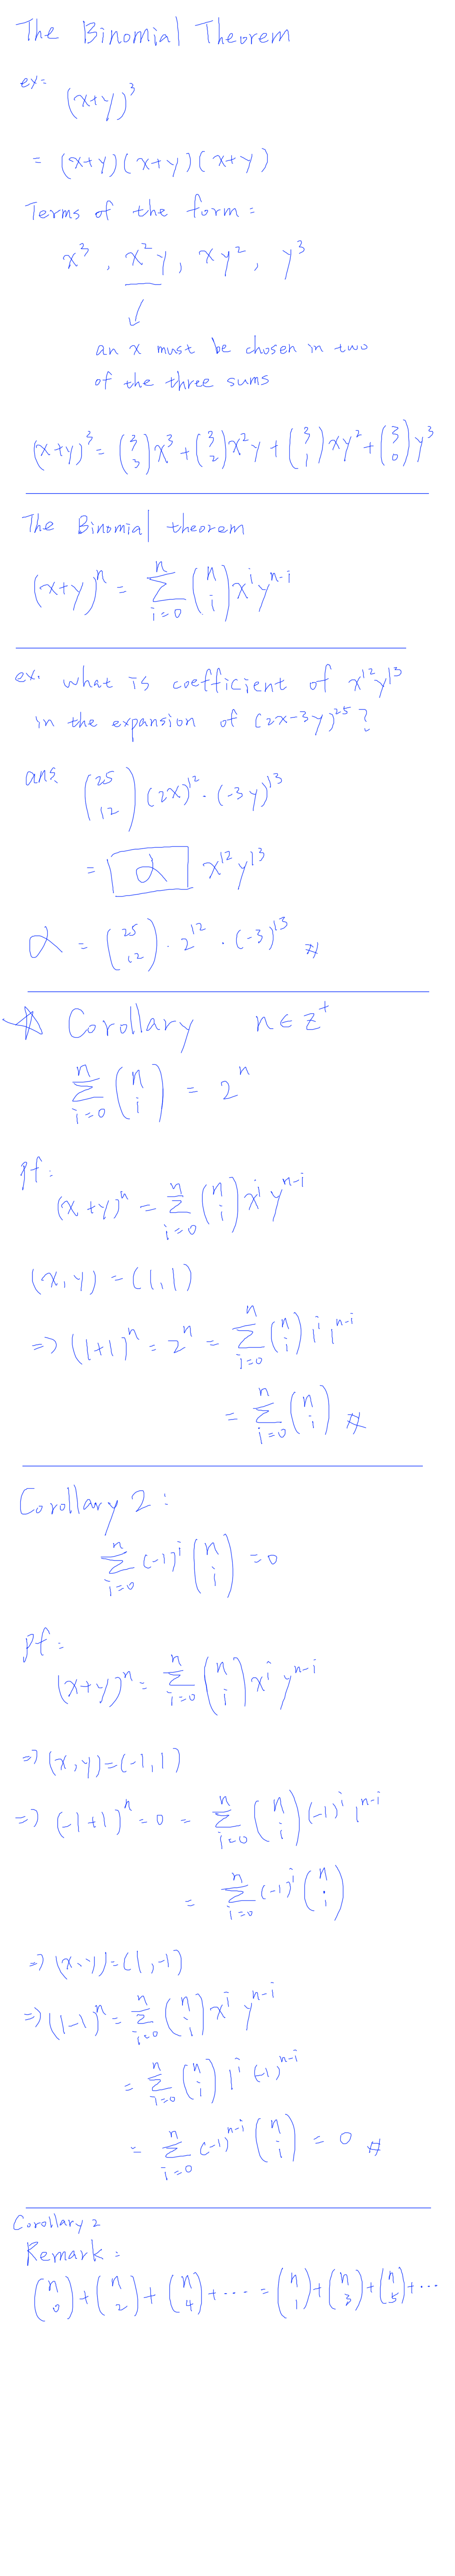 The Binomial Theorem
ex:
(x+y)³
= (x+y)(x+y)(x+y)
Terms of the form:
x³, x²y, xy², y³
↓
an x must be chosen in two
of the three sums
(x+y)³ = (3 3)x³ + (3 2)x²y + (3 1)xy² + (3 0)y³
The Binomial theorem
(x+y)ⁿ = Σ_{i=0}^{n} (n i) x^i y^{n-i}
ex. what is coefficient of x¹²y¹³
in the expansion of (2x-3y)²⁵?
ans. (25 12) (2x)¹² · (-3y)¹³
= α x¹²y¹³
α = (25 12) · 2¹² · (-3)¹³ #
☆ Corollary n∈Z⁺
Σ_{i=0}^{n} (n i) = 2ⁿ
pf:
(x+y)ⁿ = Σ_{i=0}^{n} (n i) x^i y^{n-i}
(x,y) = (1,1)
=> (1+1)ⁿ = 2ⁿ = Σ_{i=0}^{n} (n i) 1^i 1^{n-i}
= Σ_{i=0}^{n} (n i) #
Corollary 2:
Σ_{i=0}^{n} (-1)^i (n i) = 0
pf:
(x+y)ⁿ = Σ_{i=0}^{n} (n i) x^i y^{n-i}
=> (x,y)=(-1,1)
=> (-1+1)ⁿ = 0 = Σ_{i=0}^{n} (n i) (-1)^i 1^{n-i}
= Σ_{i=0}^{n} (-1)^i (n i)
=> (x,y)=(1,-1)
=> (1-1)ⁿ = Σ_{i=0}^{n} (n i) x^i y^{n-i}
= Σ_{i=0}^{n} (n i) 1^i (-1)^{n-i}
= Σ_{i=0}^{n} (-1)^{n-i} (n i) = 0 #
Corollary 2
Remark:
(n 0) + (n 2) + (n 4) + ··· = (n 1) + (n 3) + (n 5) + ···